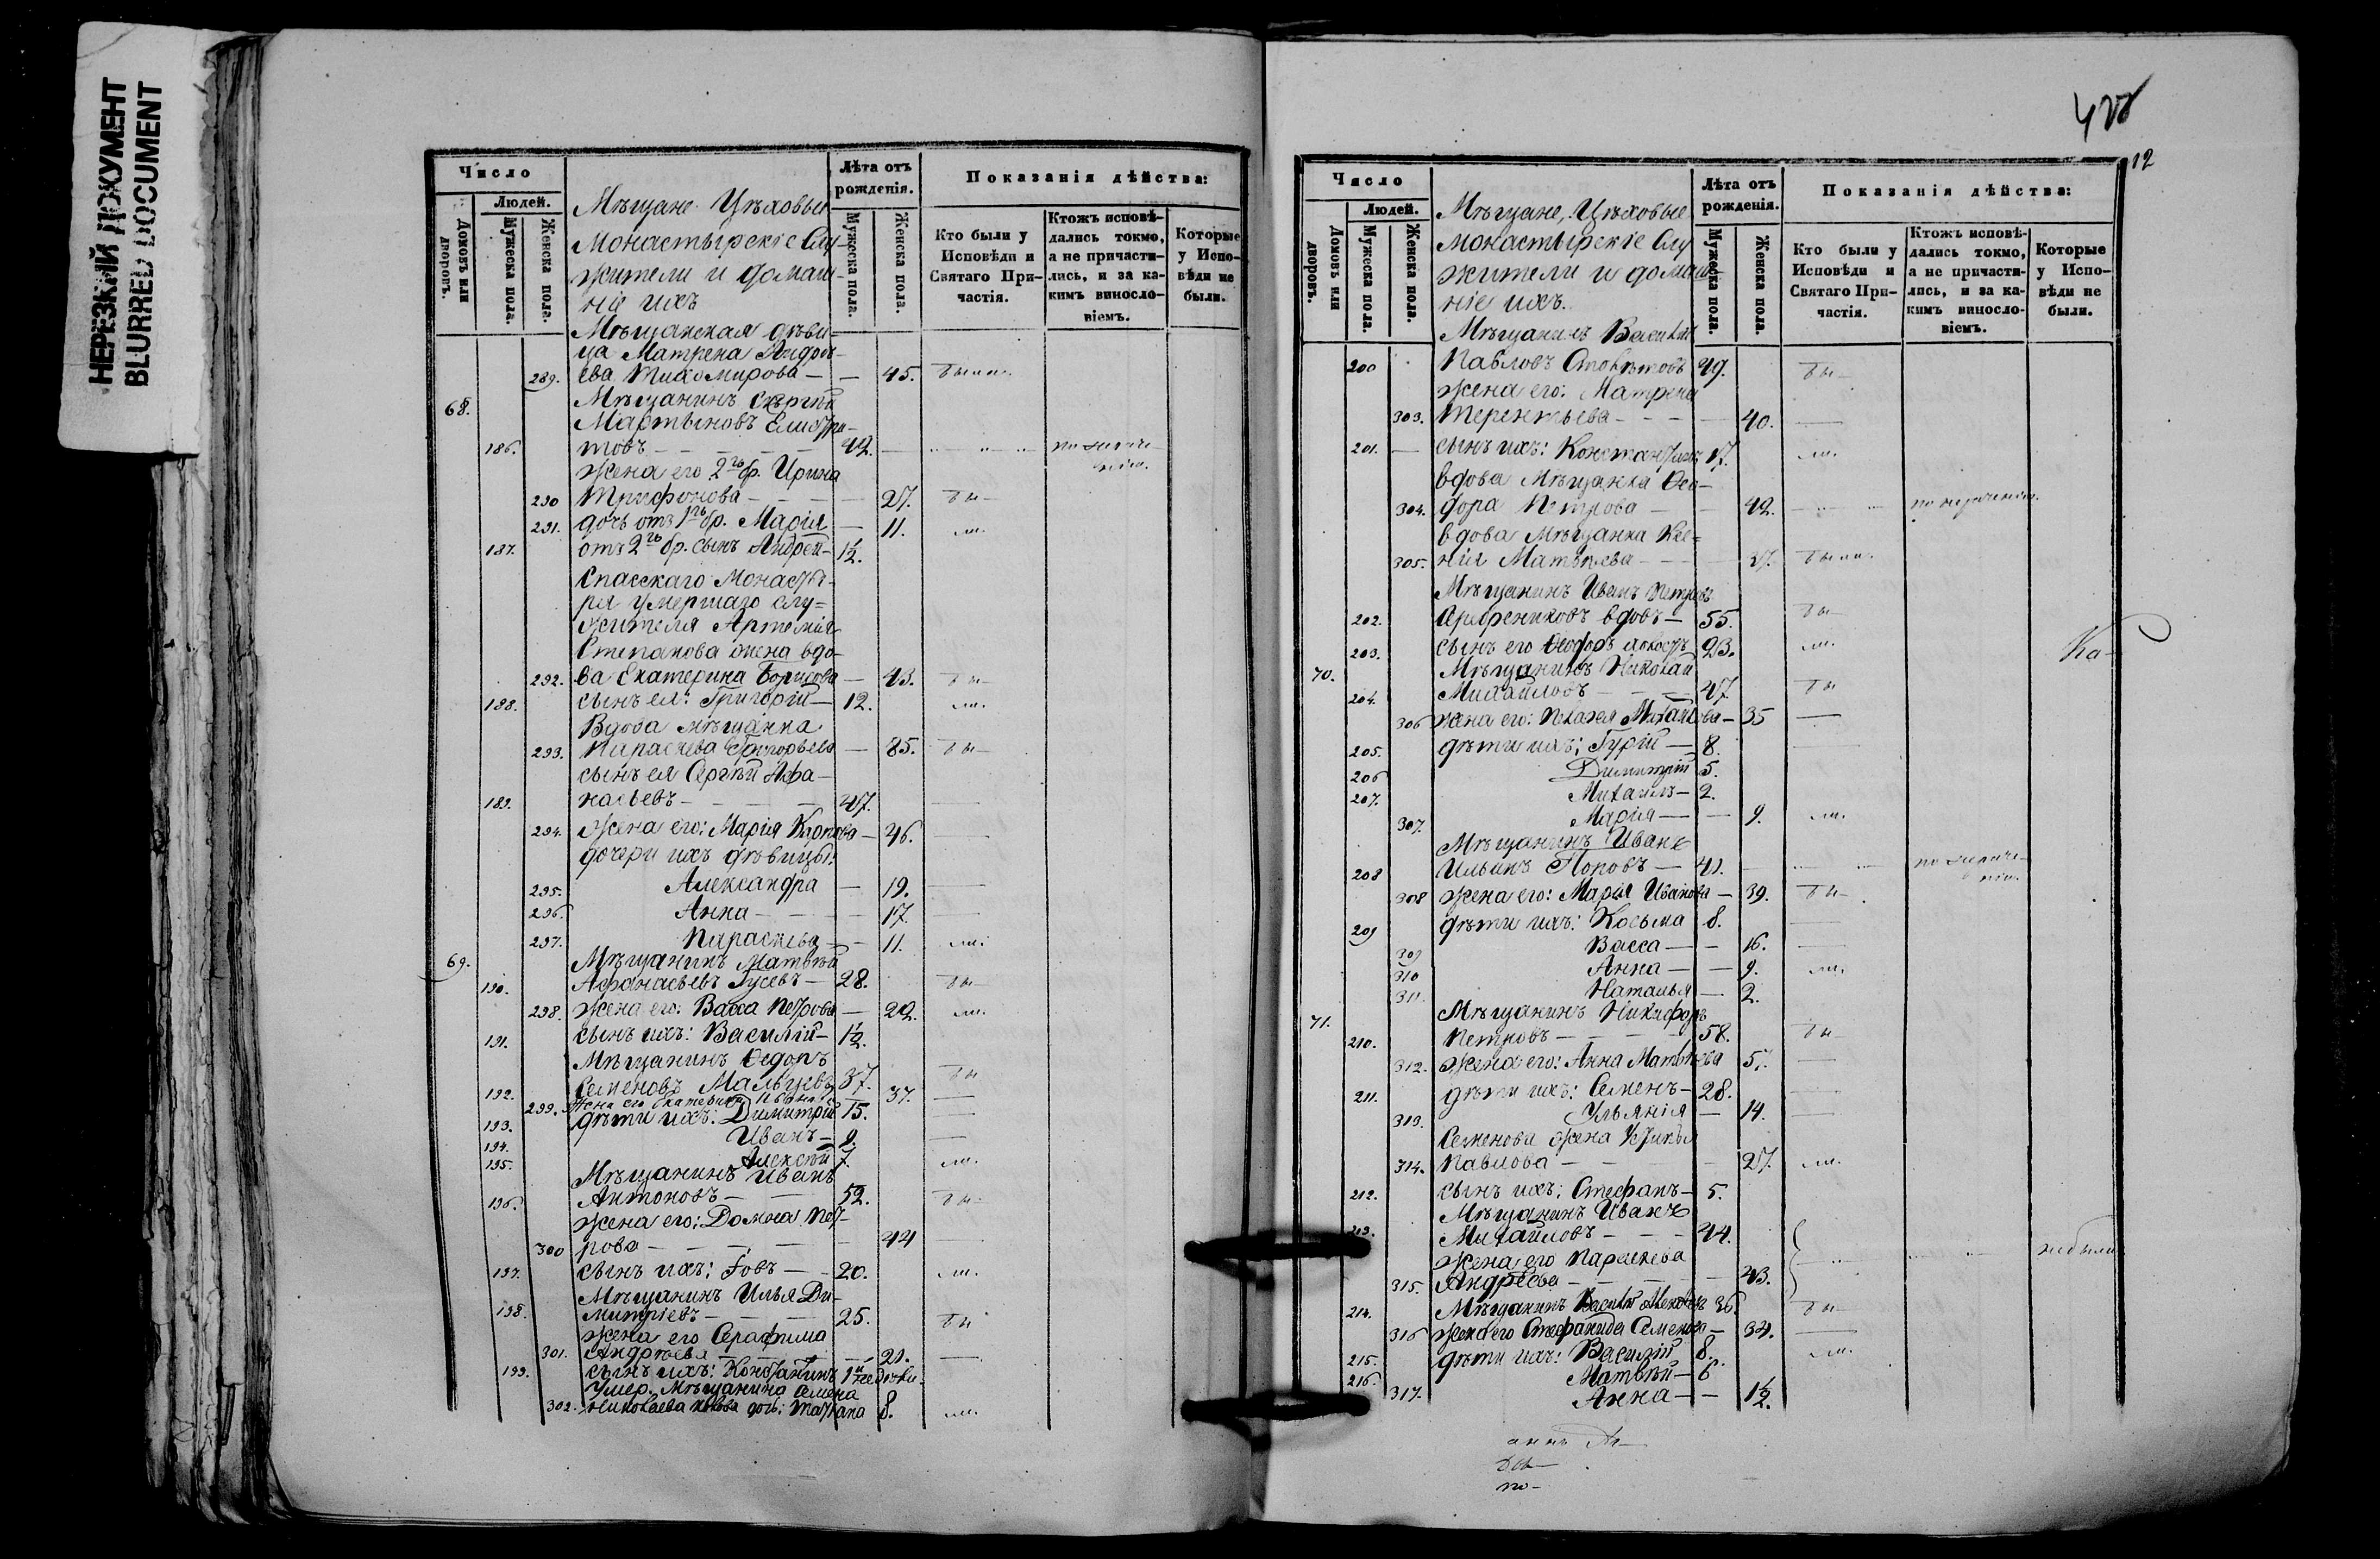 НЕРЕЗКИЙ ДОКУМЕНТ
BLURRED DOCUMENT
Число
Людей.
Домовъ или дворовъ.
Мужеска пола.
Женска пола.
Мѣщане Цѣховые
Монастырскіе Слу-
жители и домаш-
ніе ихъ
Лѣта отъ рожденія.
Мужеска пола.
Женска пола.
Показанія дѣйства:
Кто были у Исповѣди и Святаго При-частія.
Ктожъ исповѣ-дались токмо, а не причасти-лись, и за ка-кимъ винословіемъ.
Которые у Испо-вѣди не были.
Мѣщанская дѣви-
ца Матрена Андрѣ-
289. ева Тихомирова — — 45.
68. Мѣщанинъ Сергѣй
Мартыновъ
186. товъ — 42.
жена его 2го бр. Ирина
290 Трифонова — 27. бы-
291. дочь отъ 1го бр. Марія — 11. ли.
187. отъ 2го бр. сынъ Андрей — 1½.
Спасскаго Монасты-
ря умершаго слу-
жителя Артемія
Степанова жена вдо-
292. ва Екатерина Борисова — 43. бы-
188. сынъ ея: Григорій — 12. ли.
Вдова мѣщанка
293. Параскева Григорьева — 85. бы-
сынъ ея Сергѣй Афа-
189. насьевъ — 47.
294. жена его: Марія Карпова — 46.
дочери ихъ дѣвицы:
295. Александра — 19.
296. Анна — 17.
297. Параскева — 11. ли.
69. Мѣщанинъ Матвѣй
190. Афанасьевъ Гусевъ — 28. бы-
298. жена его: Васса Петрова — 22. ли.
191. сынъ ихъ: Василій — 1½.
Мѣщанинъ Федоръ
192. Семеновъ Мальцевъ 37. бы
299. Жена его Екатерина Иванова 37.
193. дѣти ихъ: Димитрій 15.
194. Иванъ — 9.
195. Алексѣй 7. ли.
Мѣщанинъ Иванъ
196. Антоновъ — 52. бы-
жена его: Домна Пет-
300 рова — 44
197. сынъ ихъ: Іовъ — 20. ли.
Мѣщанинъ Илья Ди-
198. митріевъ — 25. бы
жена его Серафима
301. Андрѣева — 21.
199. сынъ ихъ: Константинъ
Умер. Мѣщанина Семена
302. Николаева дочь: Татіана 8. ли.
12
Число
Людей.
Домовъ или дворовъ.
Мужеска пола.
Женска пола.
Мѣщане, Цѣховые
Монастырскіе Слу
жители и домаш-
ніе ихъ.
Лѣта отъ рожденія.
Мужеска пола.
Женска пола.
Показанія дѣйства:
Кто были у Исповѣди и Святаго При-частія.
Ктожъ исповѣ-дались токмо, а не причасти-лись, и за ка-кимъ винословіемъ.
Которые у Испо-вѣди не были.
Мѣщанинъ Василій
200 Павловъ 49. бы-
жена его: Матрена
303. Терентьева — 40.
201. сынъ ихъ: Константинъ 17. ли.
вдова Мѣщанка Фео-
304. дора Петрова — 42. по нераченію.
вдова Мѣщанка Ксе-
305. нія Матвѣева — 37. были.
Мѣщанинъ Иванъ Петровъ
202. вдовъ — 55. бы-
203. сынъ его Феодоръ холостъ 23. ли.
Ка-
70. Мѣщанинъ Николай
204. Михайловъ — 47 бы
306 жена его: Пелагея Михайлова — 35
205. дѣти ихъ: Гурій — 8.
206 Димитрій 5.
207. Михаилъ — 2.
307. Марія — 9. ли.
Мѣщанинъ Иванъ
208 Ильинъ Поповъ — 41. по нераче-
нію.
308 жена его: Марія Иванова — 39. бы-
209 дѣти ихъ: Косьма 8.
309 Васса — 16.
310 Анна — 9. ли.
311. Наталья — 2.
71. Мѣщанинъ Никифоръ
210. Петровъ — 58. бы-
312. жена его: Анна Матвѣева 57.
211. дѣти ихъ: Семенъ — 28.
313. Ульянія — 14.
Семенова жена
314. Павлова — 27. ли.
212. сынъ ихъ: Стефанъ — 5.
Мѣщанинъ Иванъ
213. Михайловъ — 44.
жена его Параскева
небыли
315. Андреева — 43.
214. Мѣщанинъ Василій 36. бы-
316 жена его Стефанида Семенова — 34.
215. дѣти ихъ: Василій 8. ли.
216. Матвѣй — 6
317. Анна — 1½.
по-